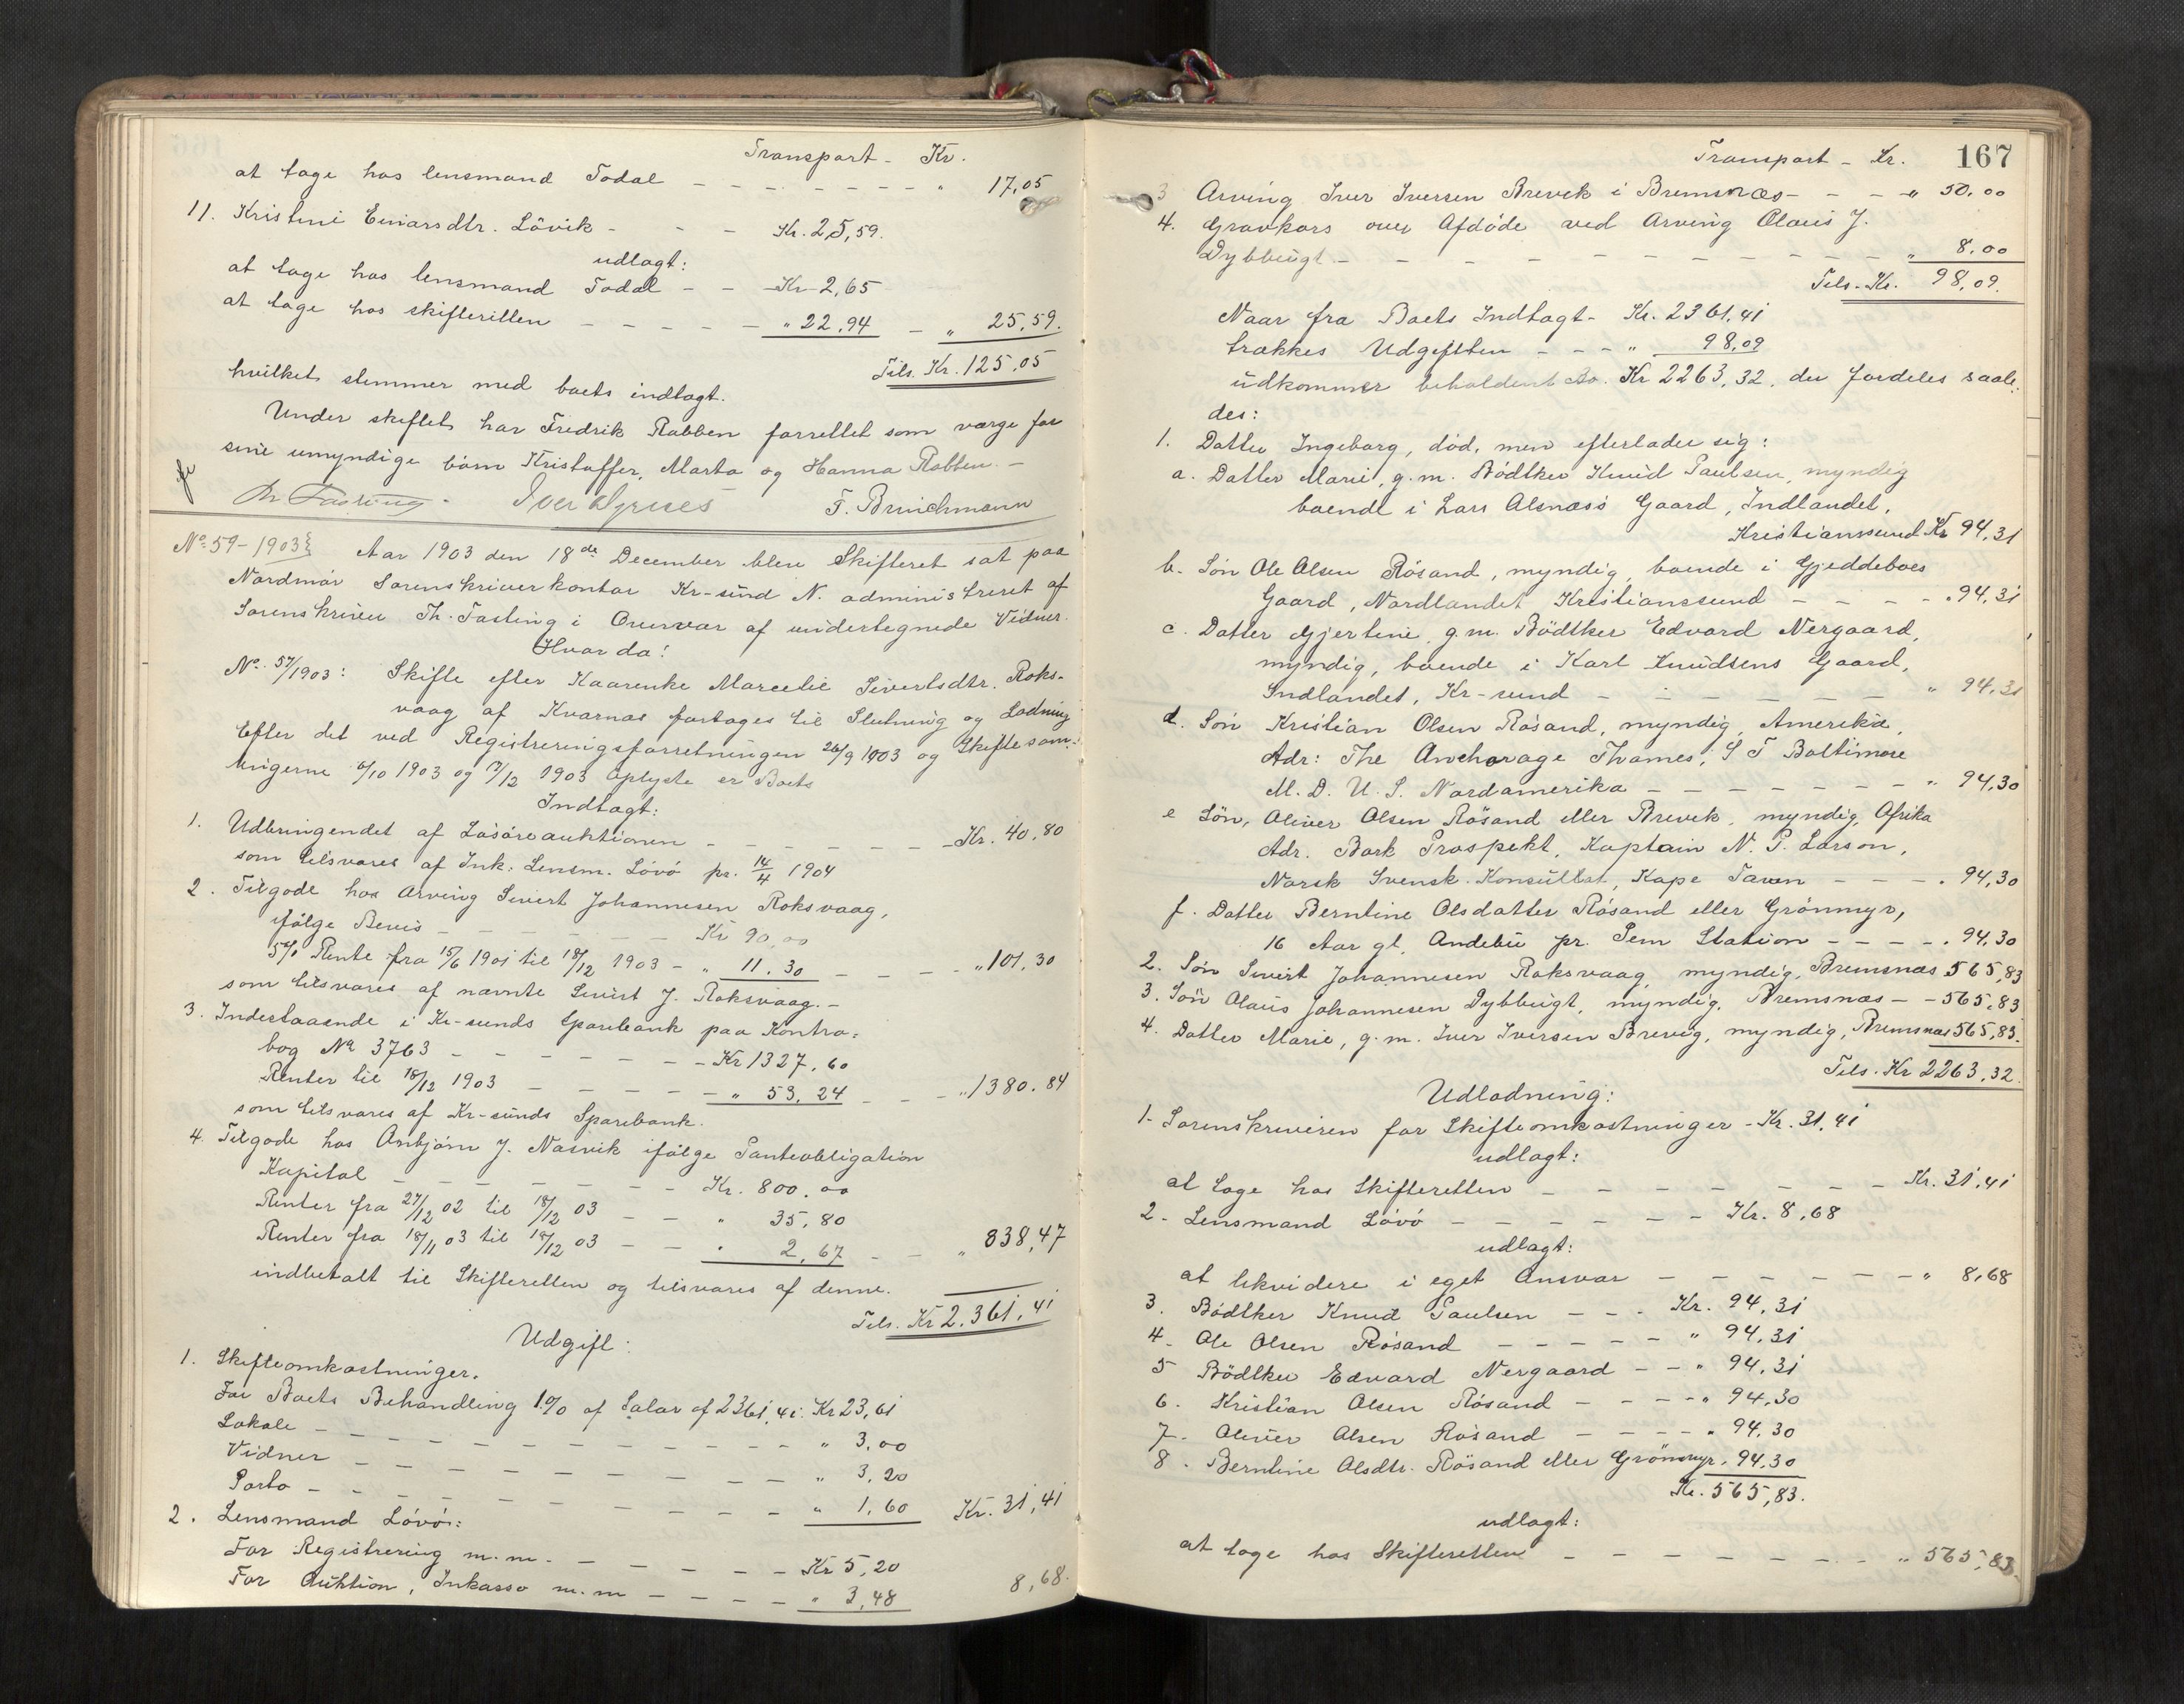 Transport - Kr.
at tage hos lensmand Todal - - - - - - - - " 17,05
11. Kristine Einarsdtr. Lövik - - - Kr. 25,59.
udlagt:
at tage hos lensmand Todal - - Kr 2,65
at tage hos skifteretten - - - - - " 22,94 - " 25,59.
Tils. Kr. 125,05
hvilket stemmer med boets indtægt.
Under skiftet har Fredrik Rabben forrettet som værge for
sine umyndige börn Kristoffer, Marta og Hanna Rabben. -
Th Fasting. Iver Dyrnes F. Brinchmann
No. 59-1903 Aar 1903 den 18de December blev Skifteret sat paa
Nordmör Sorenskriverkontor Kr-sund N. administreret af
Sorenskriver Th. Fasting i Overvær af undertegnede Vidner.
Hvor da:
No. 57/1903: Skifte efter Kaarenke Marcelie Sivertsdtr. Roks-
vaag af Kvernæs fortages til Slutning og Lodning
Efter det ved Registreringsforretningen 26/9 1903 og Skiftesam-
lingerne 6/10 1903 og 7/12 1903 oplyste er Boets
Indtægt:
1. Udbringendet af Lösöreauktionen - - - - - - - Kr. 40,80
som tilsvares af Ink: Lensm. Lövö pr. 14/4 1904
2. Tilgode hos Arving Sivert Johannesen Roksvaag,
ifölge Bevis - - - - - - - Kr 90,00
5% Rente fra 15/6 1901 til 18/12 1903 - " 11.30 - - - - " 101,30
som tilsvares af nævnte Sivert J. Roksvaag. -
3. Indestaaende i Kr-sunds Sparebank paa Kontra-
bog No 3763 - - - - - - - - Kr 1327,60
Renter til 18/12 1903 - - - - - - " 53,24 - - - " 1380.84
som tilsvares af Kr-sunds Sparebank.
4. Tilgode hos Anbjörn J. Næsvik ifölge Panteobligation
Kapital - - - - - - - Kr. 800.00
Renter fra 27/12 02 til 18/12 03 - - " 35,80
Renter fra 18/11 03 til 18/12 03 - - " 2,67 - - " 838,47
indbetalt til Skifteretten og tilsvares af denne.
Tils. Kr 2.361,41
Udgift:
1. Skifteomkostninger.
For Boets Behandling 1% af Salær af 2361,41. Kr 23,61
Lokale - - - - - - - - - - - - " 3,00
Vidner - - - - - - - - - - - " 3,20
Porto - - - - - - - - - - - " 1,60 Kr. 31,41
2. Lensmand Lövö:
For Registrering m.m. - - - - - Kr 5,20
For Auktion, Inkasso m.m - - - - " 3,48 8,68.
Transport - Kr. 167
3 Arving Iver Iversen Brevek i Bremsnæs - - - " 50,00
4. Gravkors over Afdöde ved Arving Olaus J.
Dybbugt - - - - - - - - - - - " 8.00
Tils. Kr. 98,09.
Naar fra Boets Indtægt - Kr. 2361,41
trækkes Udgiften - - - " 98,09
udkommer beholdent Bo. Kr 2263,32, der fordeles saale-
des:
1. Datter Ingeborg, död, men efterlader sig:
a. Datter Marie, g.m. Bödtker Knud Paulsen, myndig
boende i Lars Alsnæss Gaard, Indlandet,
Kristianssund Kr 94,31
b. Sön Ole Olsen Rösand, myndig, boende i Gjeddeboes
Gaard, Nordlandet Kristianssund - - - - " 94,31
c. Datter Gjertine, g.m. Bödtker Edvard Nergaard,
myndig, boende i Karl Knudsens Gaard,
Indlandet, Kr-sund - - - - - - " 94,31
d. Sön Kristian Olsen Rösand, myndig, Amerika,
Adr: The Anchorage Thames, S T Baltimore
M. D. U. S. Nordamerika - - - - - - - " 94,30
e Sön, Oliver Olsen Rösand eller Brevek, myndig, Afrika
Adr. Bark Prospekt, Kaptain N. P. Larson,
Norsk Svensk. Konsullat, Kape Taven - - - . 94,30
f. Datter Berntine Olsdatter Rösand eller Grönmyr,
16 Aar gl. Andebu pr. Sem Station - - - - . 94,30
2. Sön Sivert Johannesen Roksvaag, myndig, Bremsnæs 565,83
3. Sön Olaus Johannesen Dybbugt, myndig, Bremsnæs - - 565,83
4. Datter Marie, g.m. Iver Iversen Brevig, myndig, Bremsnæs 565,83.
Tils. Kr 2263,32.
Udlodning:
1. Sorenskriveren for Skifteomkostninger - Kr. 31,41
udlagt:
at tage hos Skifteretten - - - - - - - - Kr. 31,41
2. Lensmand Lövö - - - - - - Kr. 8,68
udlagt:
at likvidere i eget Ansvar - - - - - - - " 8,68
3. Bödtker Knud Paulsen - - - Kr. 94,31
4. Ole Olsen Rösand - - - - - " 94,31
5 Bödtker Edvard Nergaard - - " 94,31
6. Kristian Olsen Rösand - - - - " 94,30
7. Oliver Olsen Rösand - - - - " 94,30
8. Berntine Olsdtr. Rösand eller Grönmyr. 94,30
Kr. 565,83.
udlagt:
at tage hos Skifteretten - - - - - - - - " 565,83.